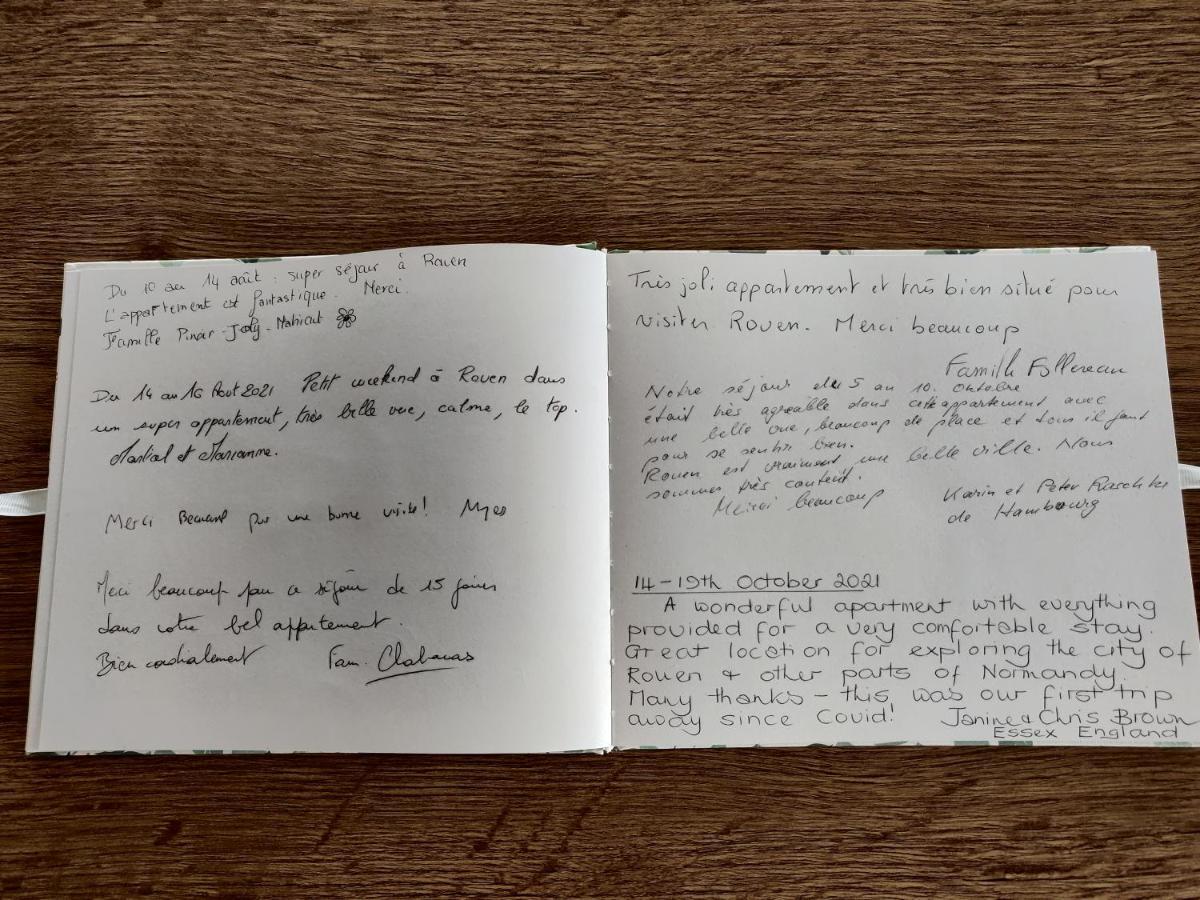 Du 10 au 14 août : super séjour à Rouen
L'appartement est fantastique. Merci.
Famille Pinar-Joly-Mahieut
Du 14 au 16 Aout 2021 Petit weekend à Rouen dans
un super appartement, très belle vue, calme, le top.
Martial et Marianne.
Merci Beaucoup pour une bonne visite!
Merci beaucoup pour ce séjour de 15 jours
dans votre bel appartement.
Bien cordialement Fam.
Très joli appartement et très bien situé pour
visiter Rouen. Merci beaucoup
Famille Follereau
Notre séjour du 5 au 10. Octobre
était très agreable dans cette appartement avec
une belle vue, beaucoup de place et tous il faut
pour se sentir bien.
Rouen est vraiment une belle ville. Nous
sommes très content.
Merci beaucoup
Karin et Peter
de Hambourg
14-19th October 2021
A wonderful apartment with everything
provided for a very comfortable stay.
Great location for exploring the city of
Rouen & other parts of Normandy.
Many thanks - this was our first trip
away since Covid! Janine & Chris Brown
Essex England